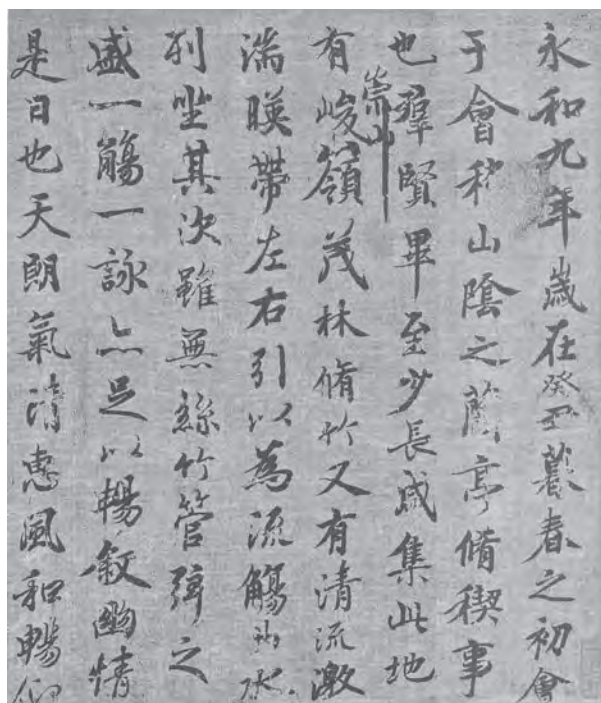 永和九年歲在癸丑暮春之初會
于會稽山陰之蘭亭脩稧事
也羣賢畢至少長咸集此地
有崇山峻嶺茂林脩竹又有清流激
湍暎帶左右引以為流觴曲水
列坐其次雖無絲竹管弦之
盛一觴一詠亦足以暢敘幽情
是日也天朗氣清惠風和暢仰